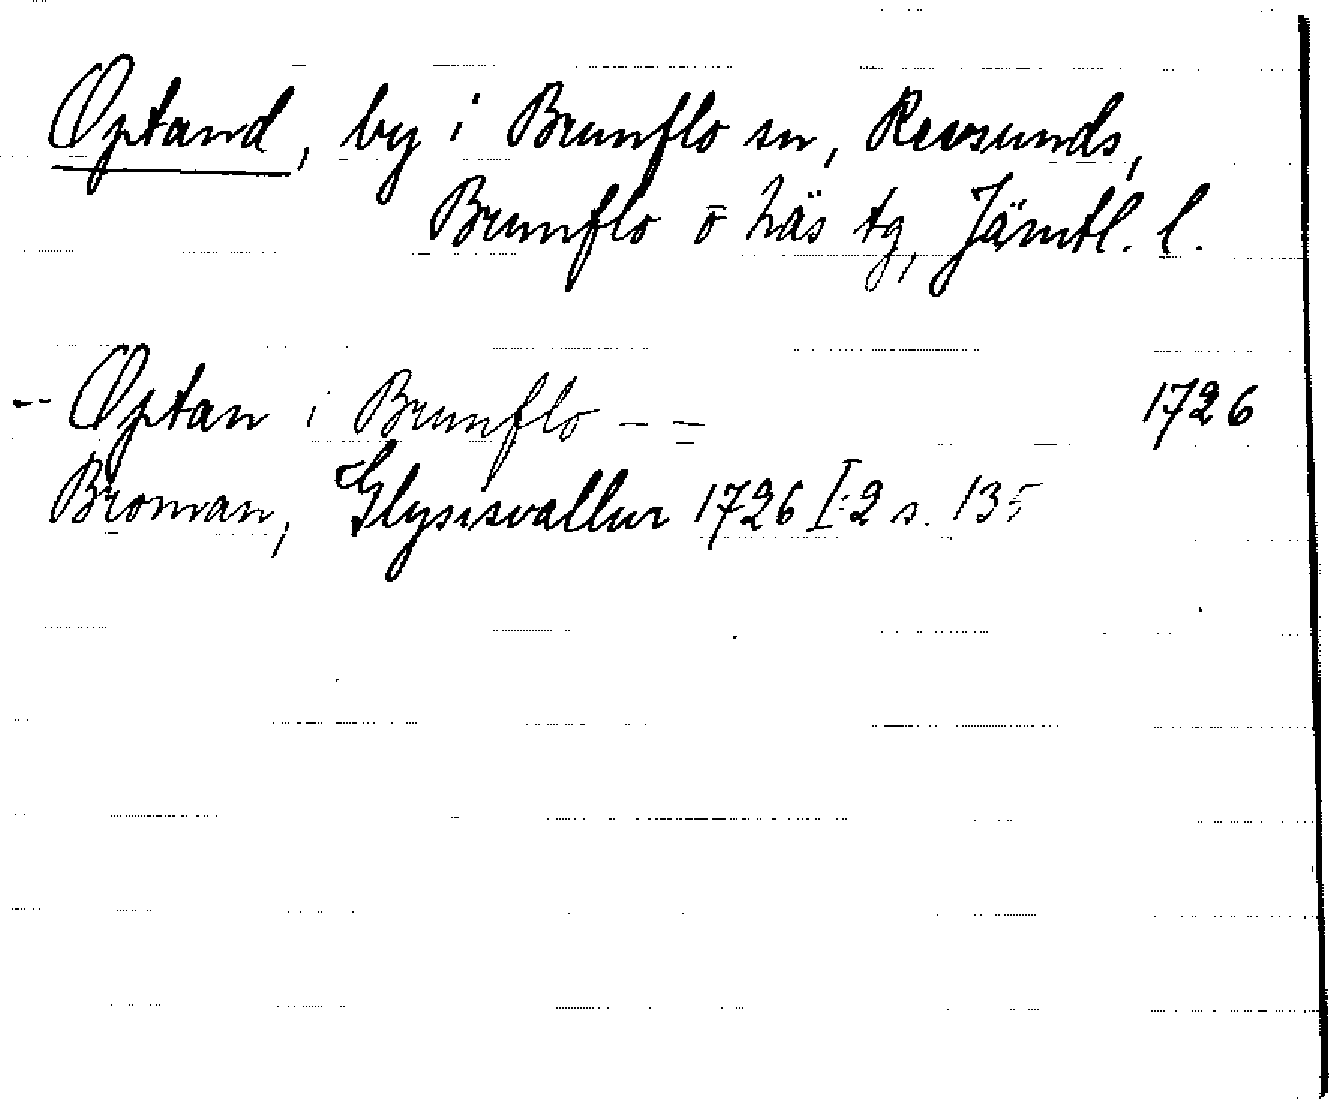 Optand, by i Brunflo sn, Revsunds,
Brunflo o Näs tg, Jämtl. l.
-- Optan i Brunflo -- 1726
Broman, Glysisvallur 1726 I:2 s. 135